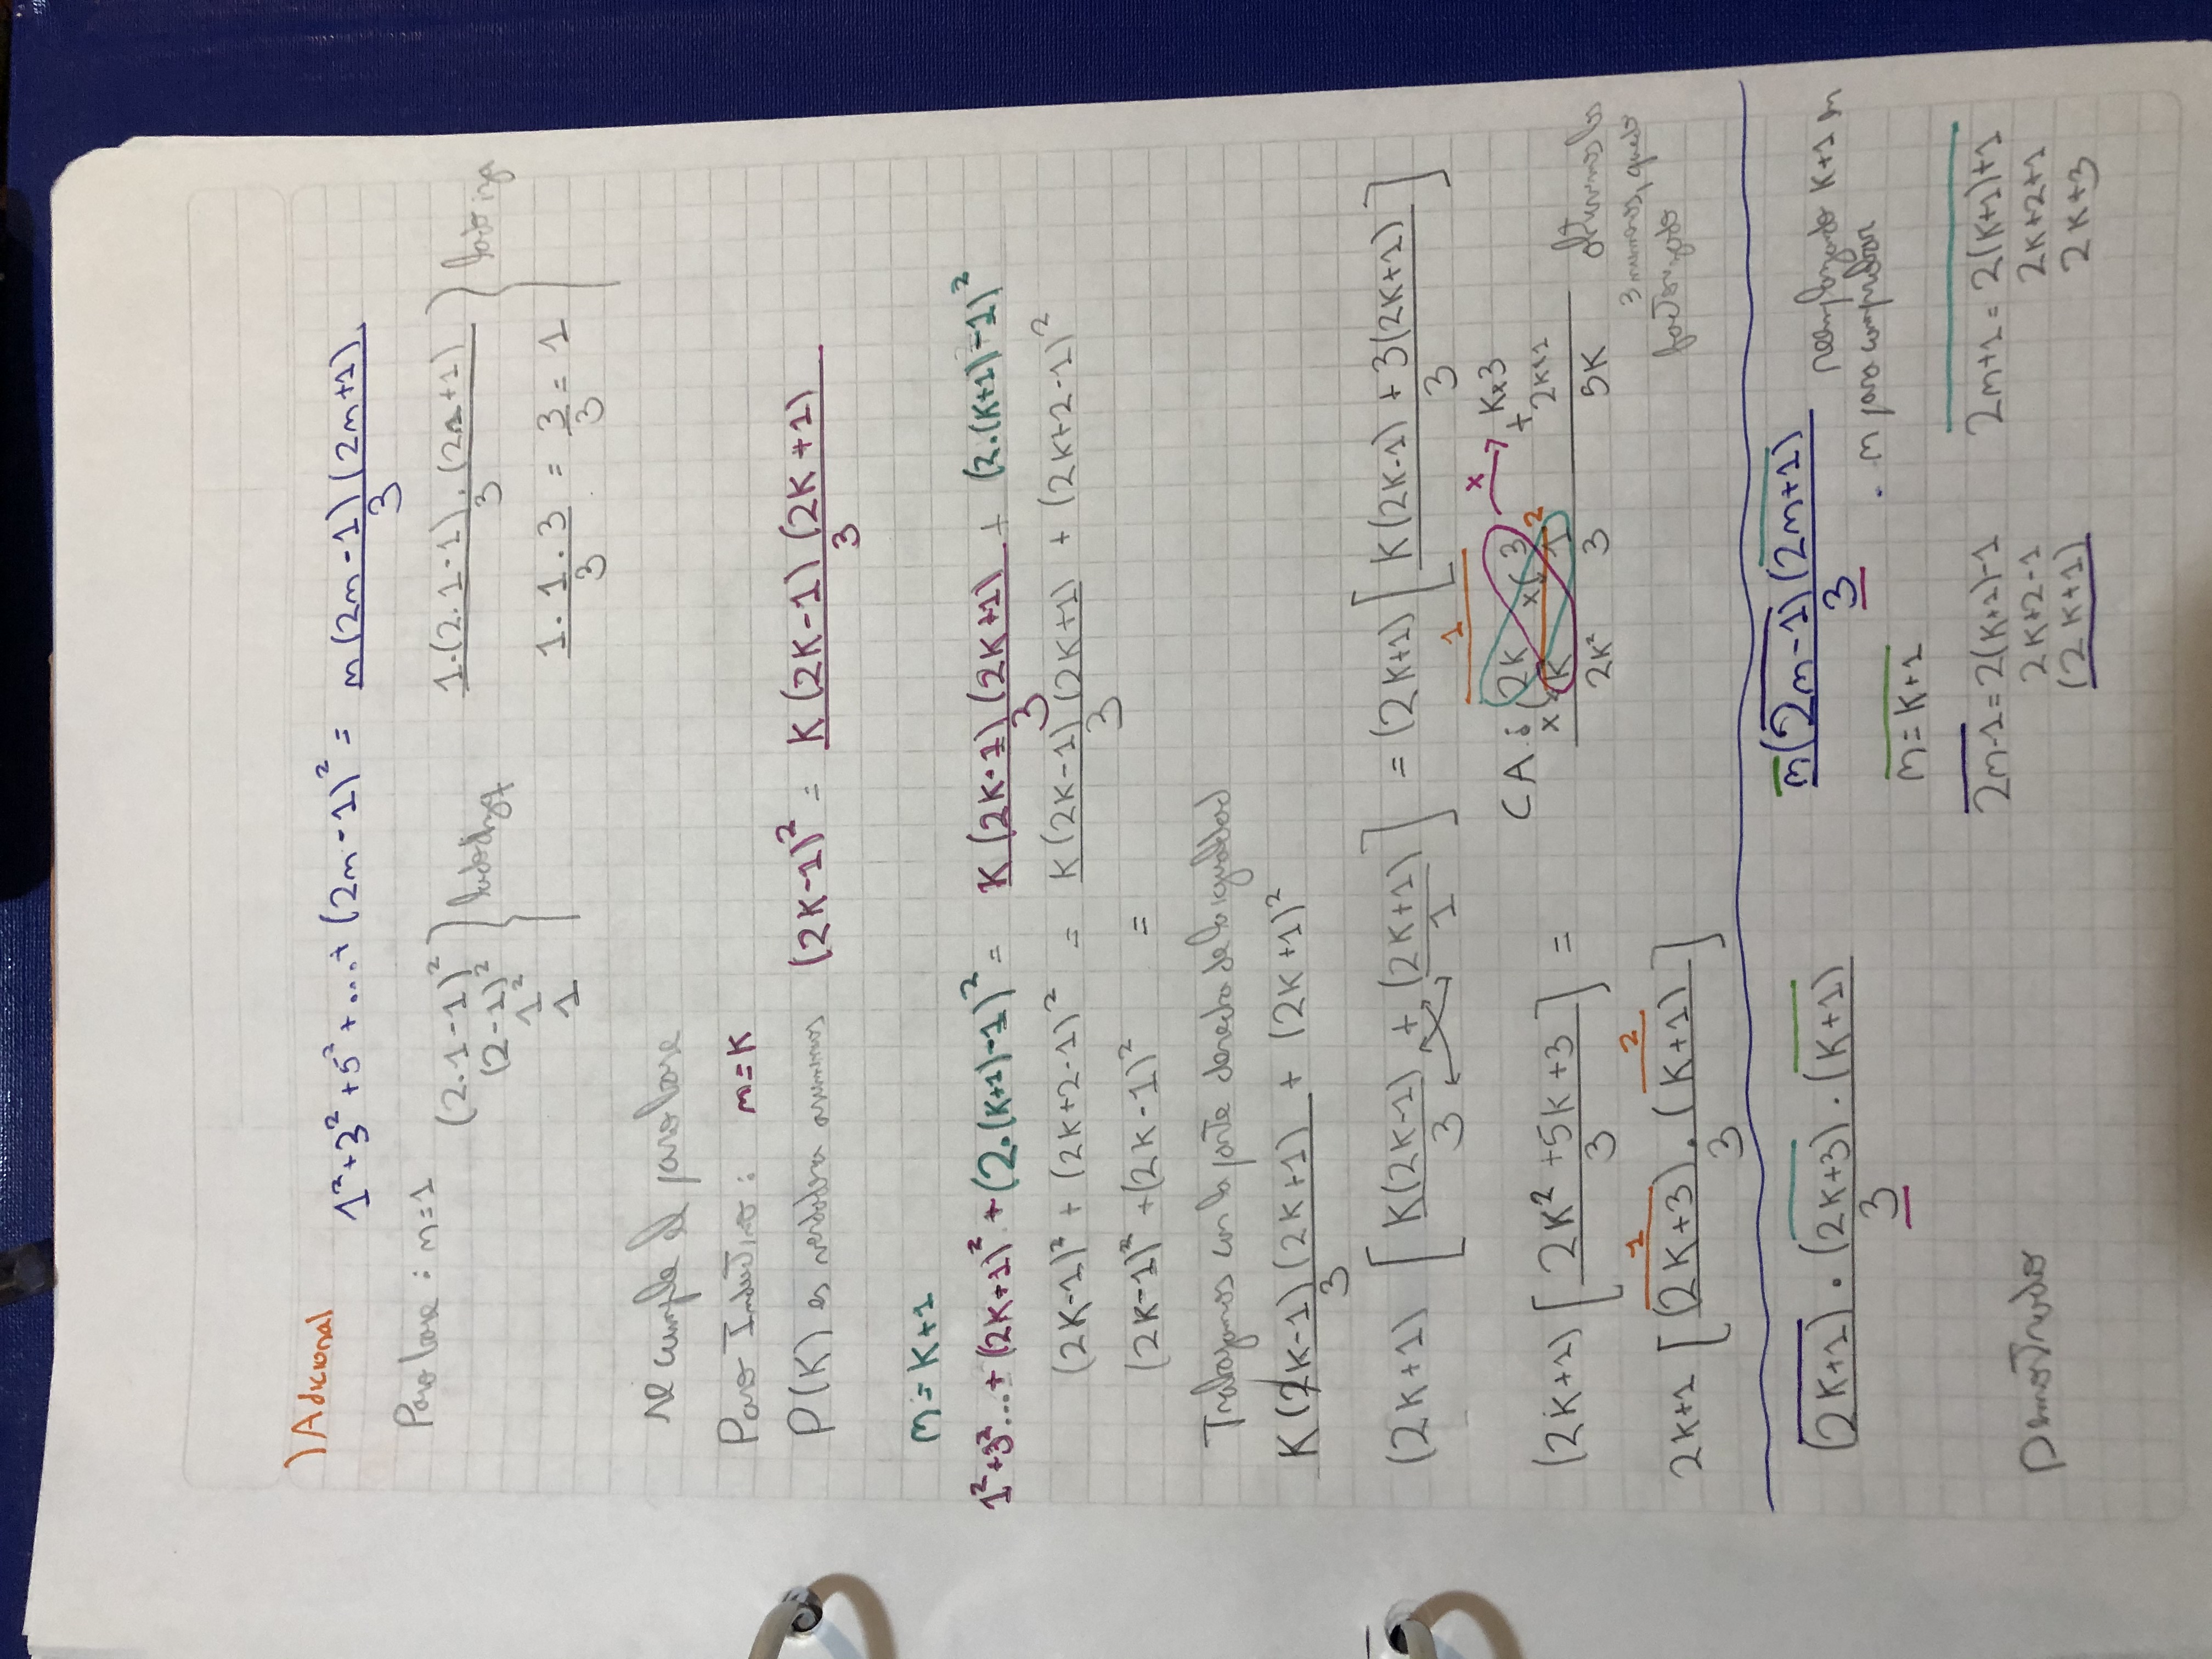 ) Adicional
1² + 3² + 5² + ... + (2n - 1)² = n(2n - 1)(2n+1) / 3
Paso base : n=1
(2.1-1)² } lado izq
(2-1)²
1²
1
1.(2.1-1).(2.1+1) / 3 } lado izq
1.1.3 / 3 = 3/3 = 1
se cumple el paso base
Paso Inductivo : n=K
P(K) es verdadera asumimos (2K-1)² = K(2K-1)(2K+1) / 3
n = K+1
1²+3²...+ (2K+1)² + (2.(K+1)-1)² = K(2K-1)(2K+1) / 3 + (2.(K+1)-1)²
(2K-1)² + (2K+2-1)² = K(2K-1)(2K+1) / 3 + (2K+2-1)²
(2K-1)² + (2K-1)² =
Trabajamos con la parte derecha de la igualdad
K(2K-1)(2K+1) / 3 + (2K+1)²
(2K+1) [ K(2K-1) / 3 + (2K+1) / 1 ] = (2K+1) [ K(2K-1) + 3(2K+1) / 3 ]
(2K+1) [ 2K² + 5K + 3 / 3 ] =
CA : 1
2K 3 x K x 3
x K x 1 2 + 2K x 1
2K² 3 5K
obtuvimos los
3 numeros, quedo
factorizado
1 2
2K+1 [ (2K+3) . (K+1) / 3 ]
(2K+1) . (2K+3) . (K+1) / 3
n(2n-1)(2n+1) / 3
reemplazando K+1 en
n para comprobar
n = K+1
2n-1 = 2(K+1)-1
2K+2-1
(2K+1)
2n+1 = 2(K+1)+1
2K+2+1
2K+3
Demostrado